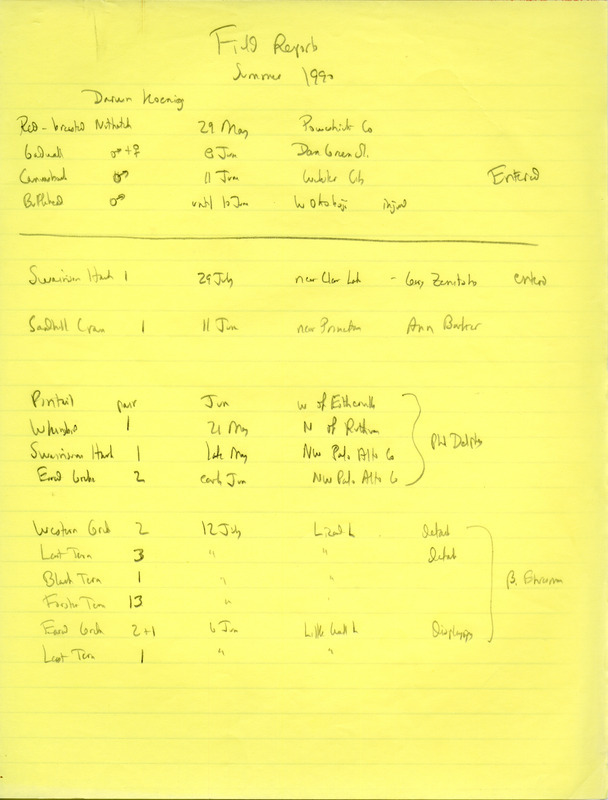 Field Reports
Summer 1990
Darwin Koenig
Red-breasted Nuthatch 29 May Poweshiek Co
Gadwall ♂+♀ 8 Jun Dan Green Sl.
Canvasback ♂ 11 Jun Webster City Entered
Bufflehead ♂ until 10 Jun W Okoboji injured
Swainson Hawk 1 29 July near Clear Lake - entered
Sandhill Crane 1 11 Jun near Princeton Ann Barker
Pintail pair Jun W of Estherville
Whimbrel 1 21 May N of Ruthven
Swainson Hawk 1 late May NW Palo Alto Co
Eared Grebe 2 early Jun NW Palo Alto Co
Western Grebe 2 12 July Lizard L detail
Least Tern 3 " " detail
Black Tern 1 " "
Forster Tern 13 " "
Eared Grebe 2+1 6 Jun Little Wall L Displaying
Least Tern 1 " "